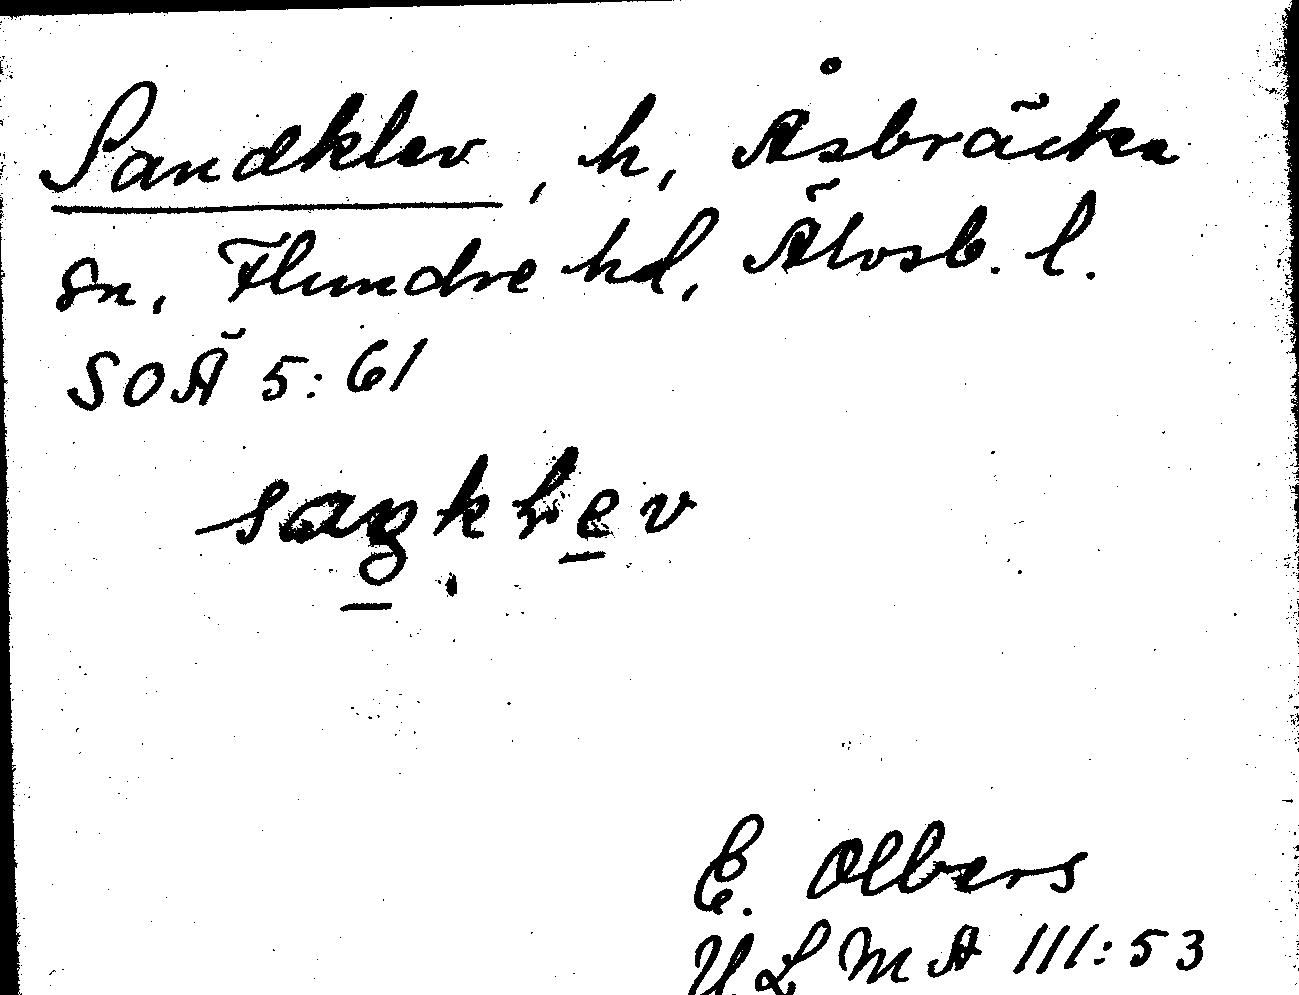 Sandklev, h, Åsbräcka
sn, Flundre hd, Älvsb. l.
SOÄ 5:61
E. Olbers
ULMA III:53